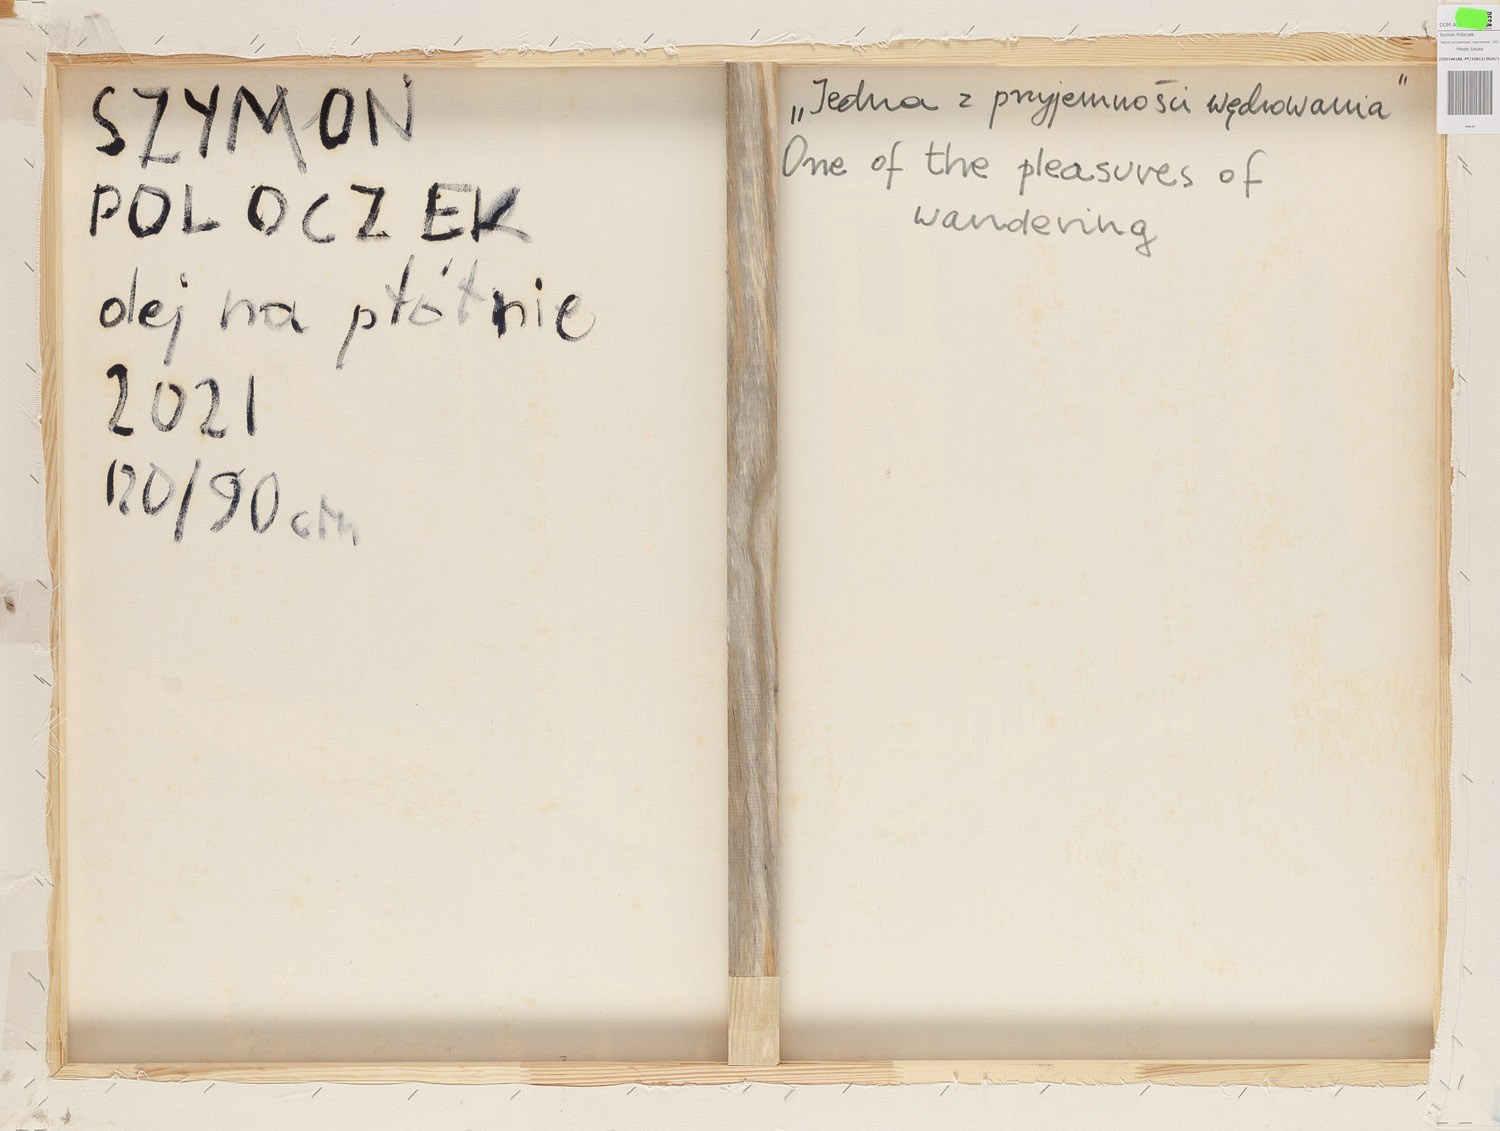 SZYMON
POLOCZEK
olej na płótnie
2021
120/90 cm
„Jedna z przyjemności wędrowania”
One of the pleasures of
wandering
DOM A
Szymon Poloczek
Młoda Sztuka